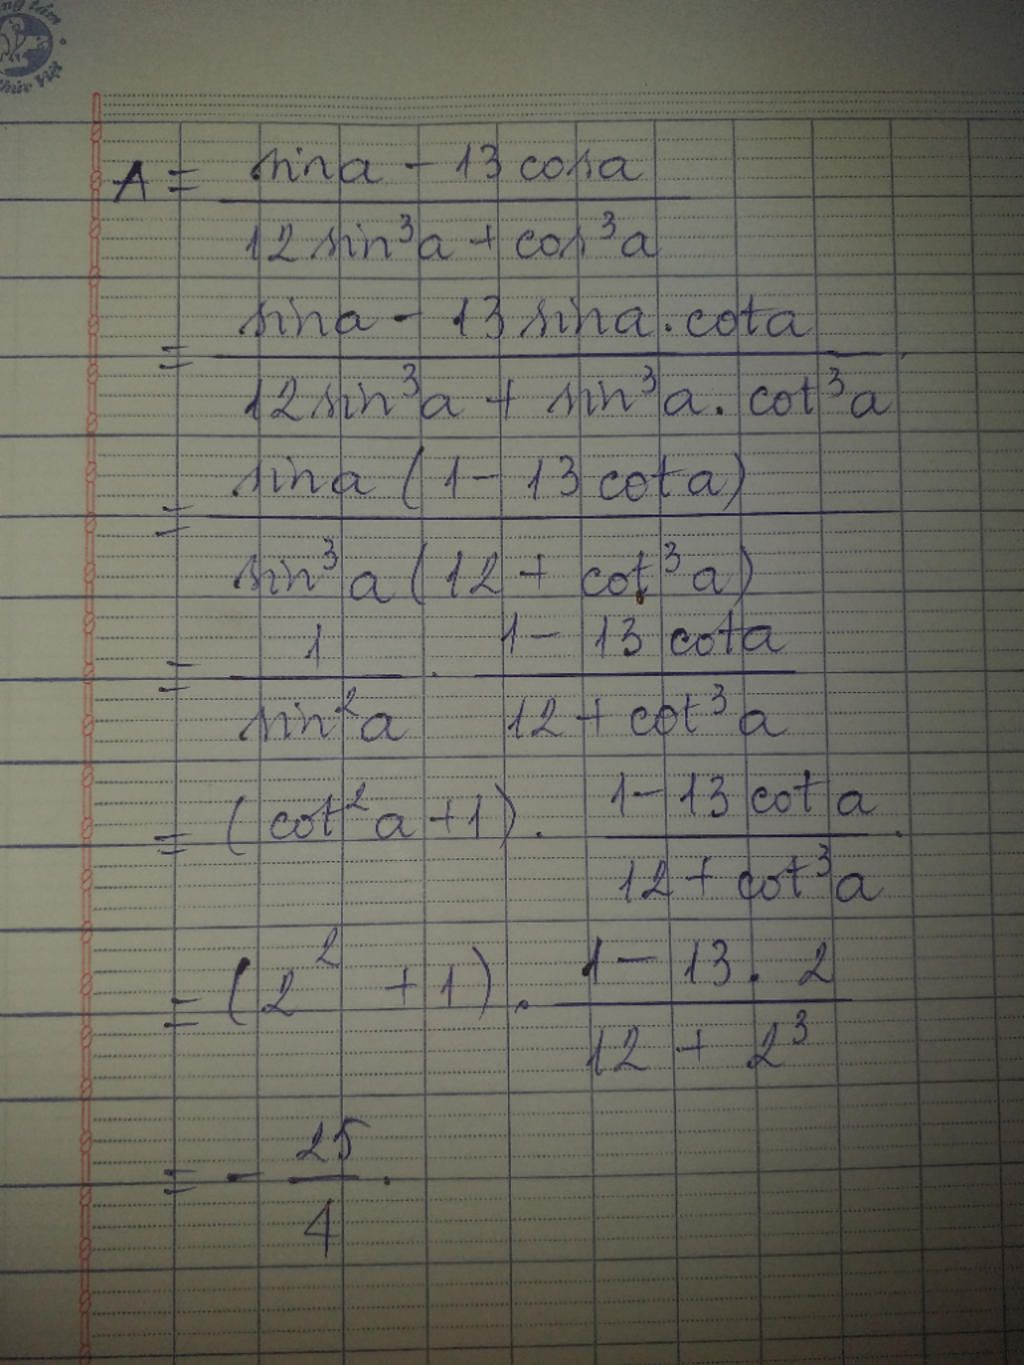 A = (sina - 13 cosa) / (12 sin³a + cos³a)
= (sina - 13 sina . cota) / (12 sin³a + sin³a . cot³a)
= sina (1 - 13 cota) / sin³a (12 + cot³a)
= 1 / sin²a . (1 - 13 cota) / (12 + cot³a)
= (cot²a + 1) . (1 - 13 cota) / (12 + cot³a) .
= (2² + 1) . (1 - 13 . 2) / (12 + 2³)
= - 25 / 4 .